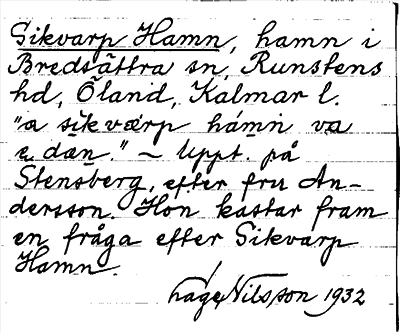 Sikvarp Hamn, hamn i
Bredsättra sn, Runstens
hd, Öland, Kalmar l.
"a sikværp hámǹ va
e dan." – Uppt. på
Stensberg, efter fru An-
dersson. Hon kastar fram
en fråga efter Sikvarp
Hamn.
Hage Nilsson 1932